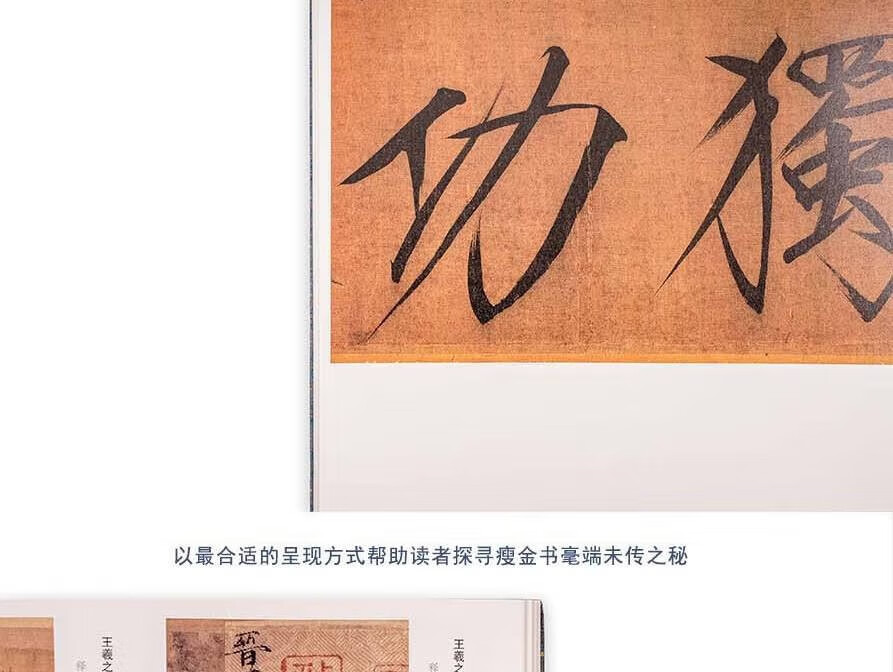 功獨
以最合适的呈现方式帮助读者探寻瘦金书毫端未传之秘
王羲之
释
晉
王羲之
释